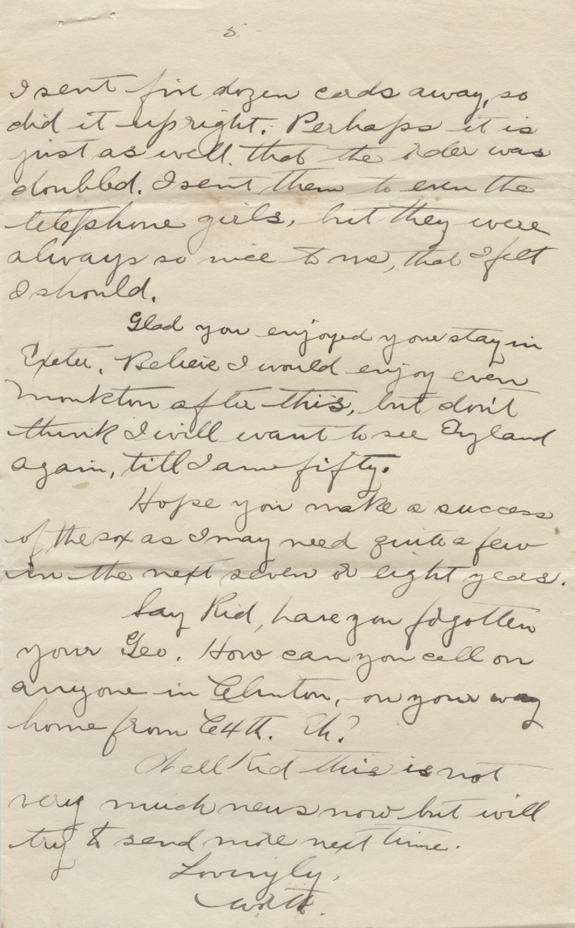 - 5 -
I sent five dozen cards away, so
did it up right. Perhaps it is
just as well that the order was
doubled. I sent them to even the
telephone girls, but they were
always so nice to me, that I felt
I should.
Glad you enjoyed your stay in
Exeter. Believe I would enjoy even
Monkton after this, but don't
think I will want to see England
again, till I am fifty.
Hope you make a success
of the sox as I may need quite a few
in the next seven or eight years.
Say Kid, have you forgotten
your Geo. How can you call on
anyone in Clinton, on your way
home from C4th. Eh?
Well Kid this is not
very much news now but will
try to send more next time.
Lovingly,